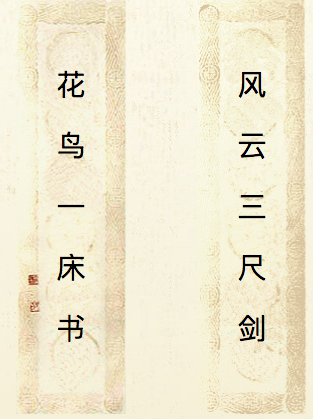 风云三尺剑
花鸟一床书